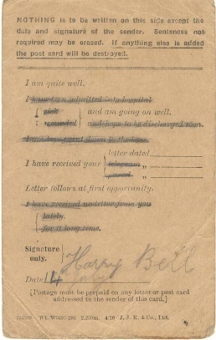 NOTHING is to be written on this side except the
date and signature of the sender. Sentences not
required may be erased. If anything else is added
the post card will be destroyed.
I am quite well.
I have been admitted into hospital
sick and am going on well.
wounded and hope to be discharged soon.
I have received your
letter dated
telegram „
parcel „
Letter follows at first opportunity.
I have received no letter from you
lately.
for a long time.
Signature
only. Harry Bell
Date
[Postage must be prepaid on any letter or post card
addressed to the sender of this card.]